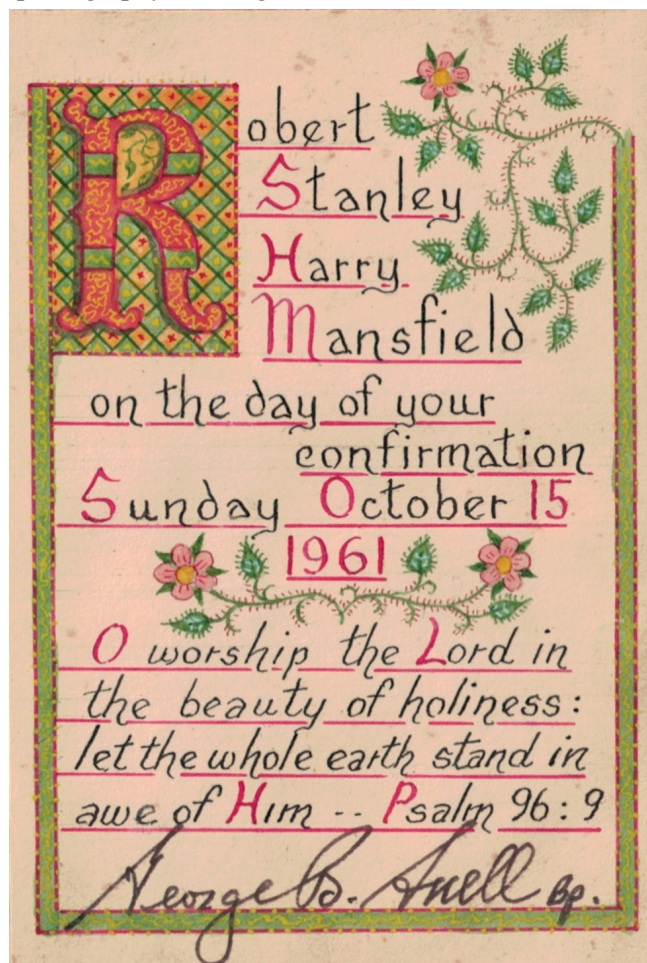 Robert
Stanley
Harry
Mansfield
on the day of your
confirmation
Sunday October 15
1961
O worship the Lord in
the beauty of holiness:
let the whole earth stand in
awe of Him -- Psalm 96:9
George B. Snell Bp.